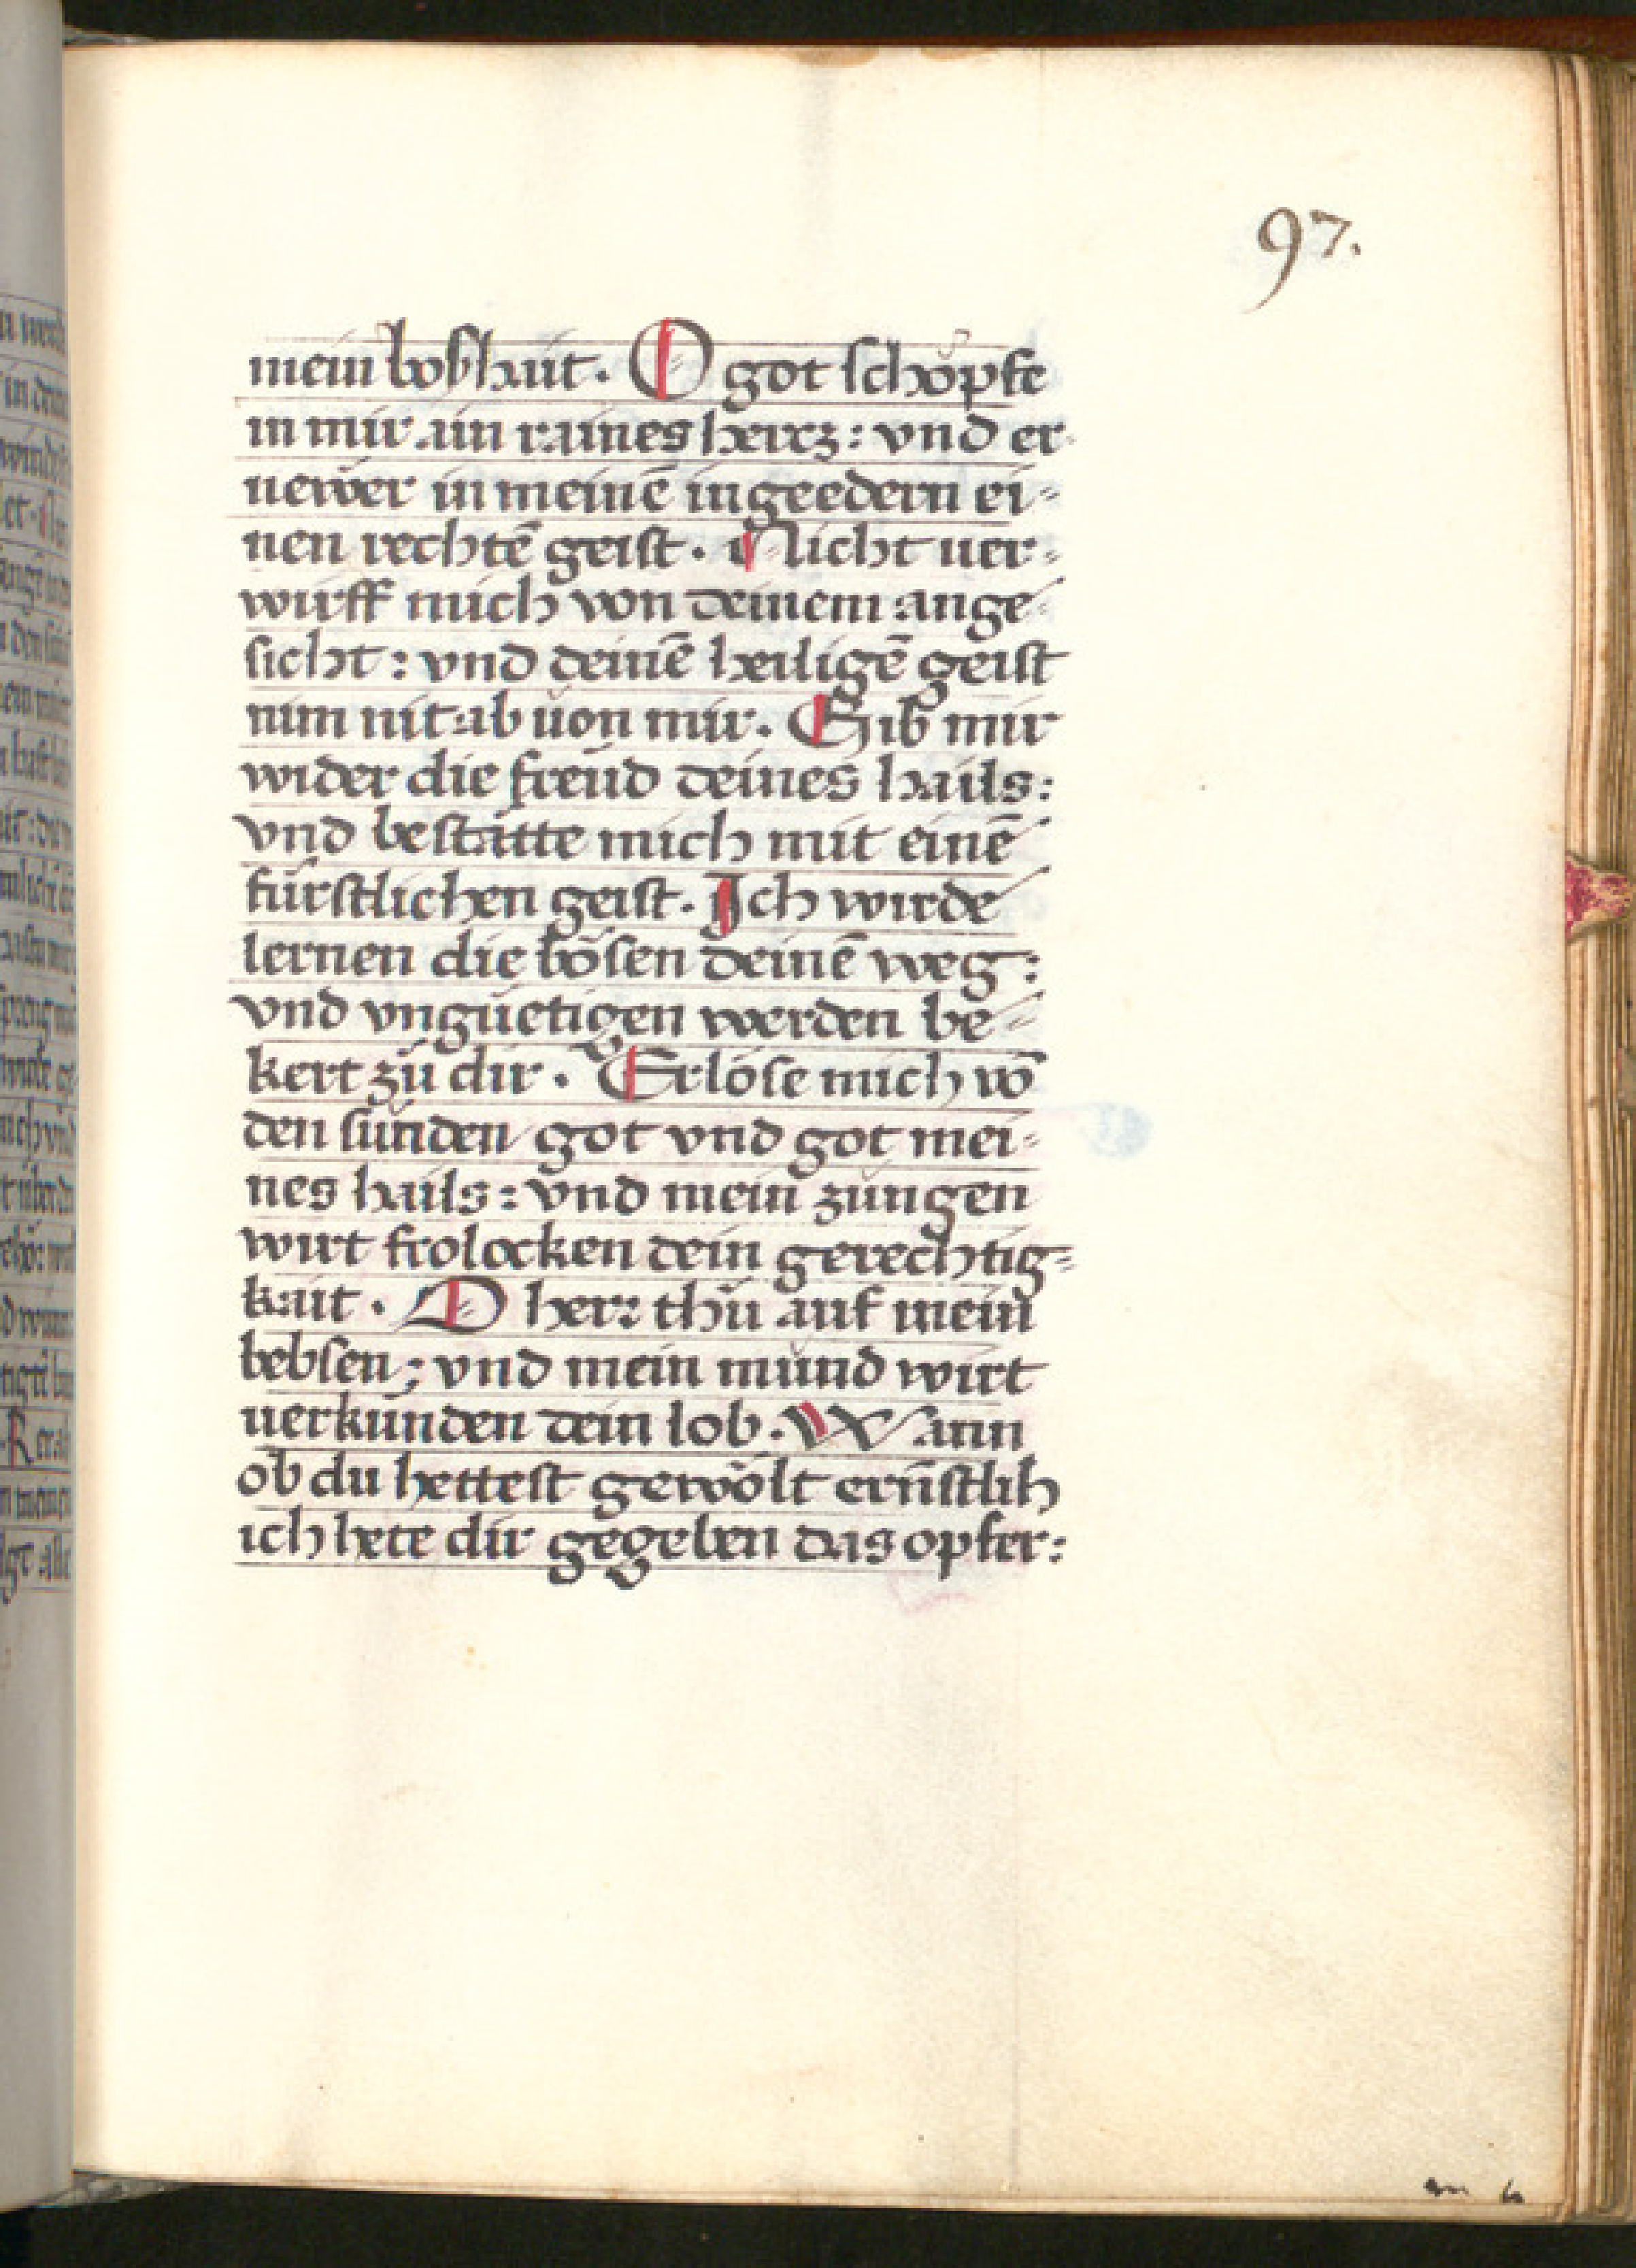 97.
mein boßhait. O got schöpfe
in mir ain raines hercz: vnd er
newer in meinē ingeedern ei=
nen rechtē geist. Nicht uer=
wirff mich von deinem ange=
sicht: vnd deinē heiligē geist
nim nit ab uon mir. Gib mir
wider die freud deines hails:
vnd bestätte mich mit einē
fürstlichen geist. Ich wirde
lernen die bösen deinē weg:
vnd vngüetigen werden be=
kert zů dir. Erlöse mich vō
den sünden got vnd got mei=
nes hails: vnd mein zungen
wirt frolocken dein gerechtig=
kait. O herr thů auf mein
lebsen: vnd mein mund wirt
uerkünden dein lob. Wann
ob du hettest gewölt ernstlih
ich hete dir gegeben das opfer:
m 6